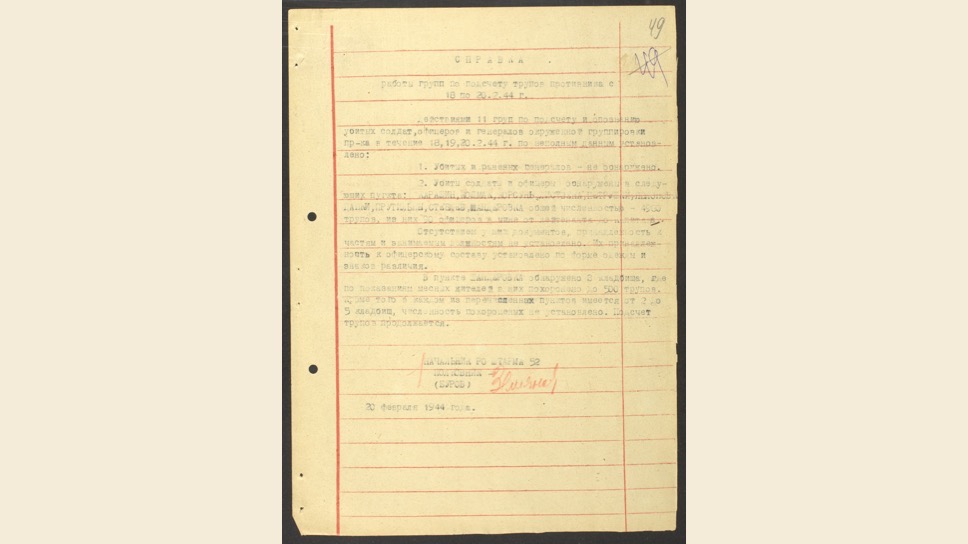 49
49
СПРАВКА .
работы групп по подсчету трупов противника с
18 по 20.2.44 г.
Действиями 11 груп по подсчету и опознанию
убитых солдат, офицеров и генералов окруженной группировки
пр-ка в течение 18,19,20.2.44 г. по неполным данным установ-
лено:
1. Убитых и раненых генералов - не обнаружено.
2. Убиты солдаты и офицеры обнаружены в следу-
ющих пунктах:
трупов, из них офицеров в чине от
Отсутствием у них документов, принадлежность к
частям и занимаемым должностям не установлено. Их принадлеж-
ность к офицерскому составу установлено по форме одежды и
знаков различия.
В пункте ШАНДЕРОВКА обнаружено 2 кладбища, где
по показаниям местных жителей в них похоронено до 500 трупов.
Кроме того в каждом из перечисленных пунктов имеется от 2 до
5 кладбищ, численность похороненных не установлено. Подсчет
трупов продолжается.
НАЧАЛЬНИК РО ШТАРМА 52
ПОЛКОВНИК -
20 февраля 1944 года.